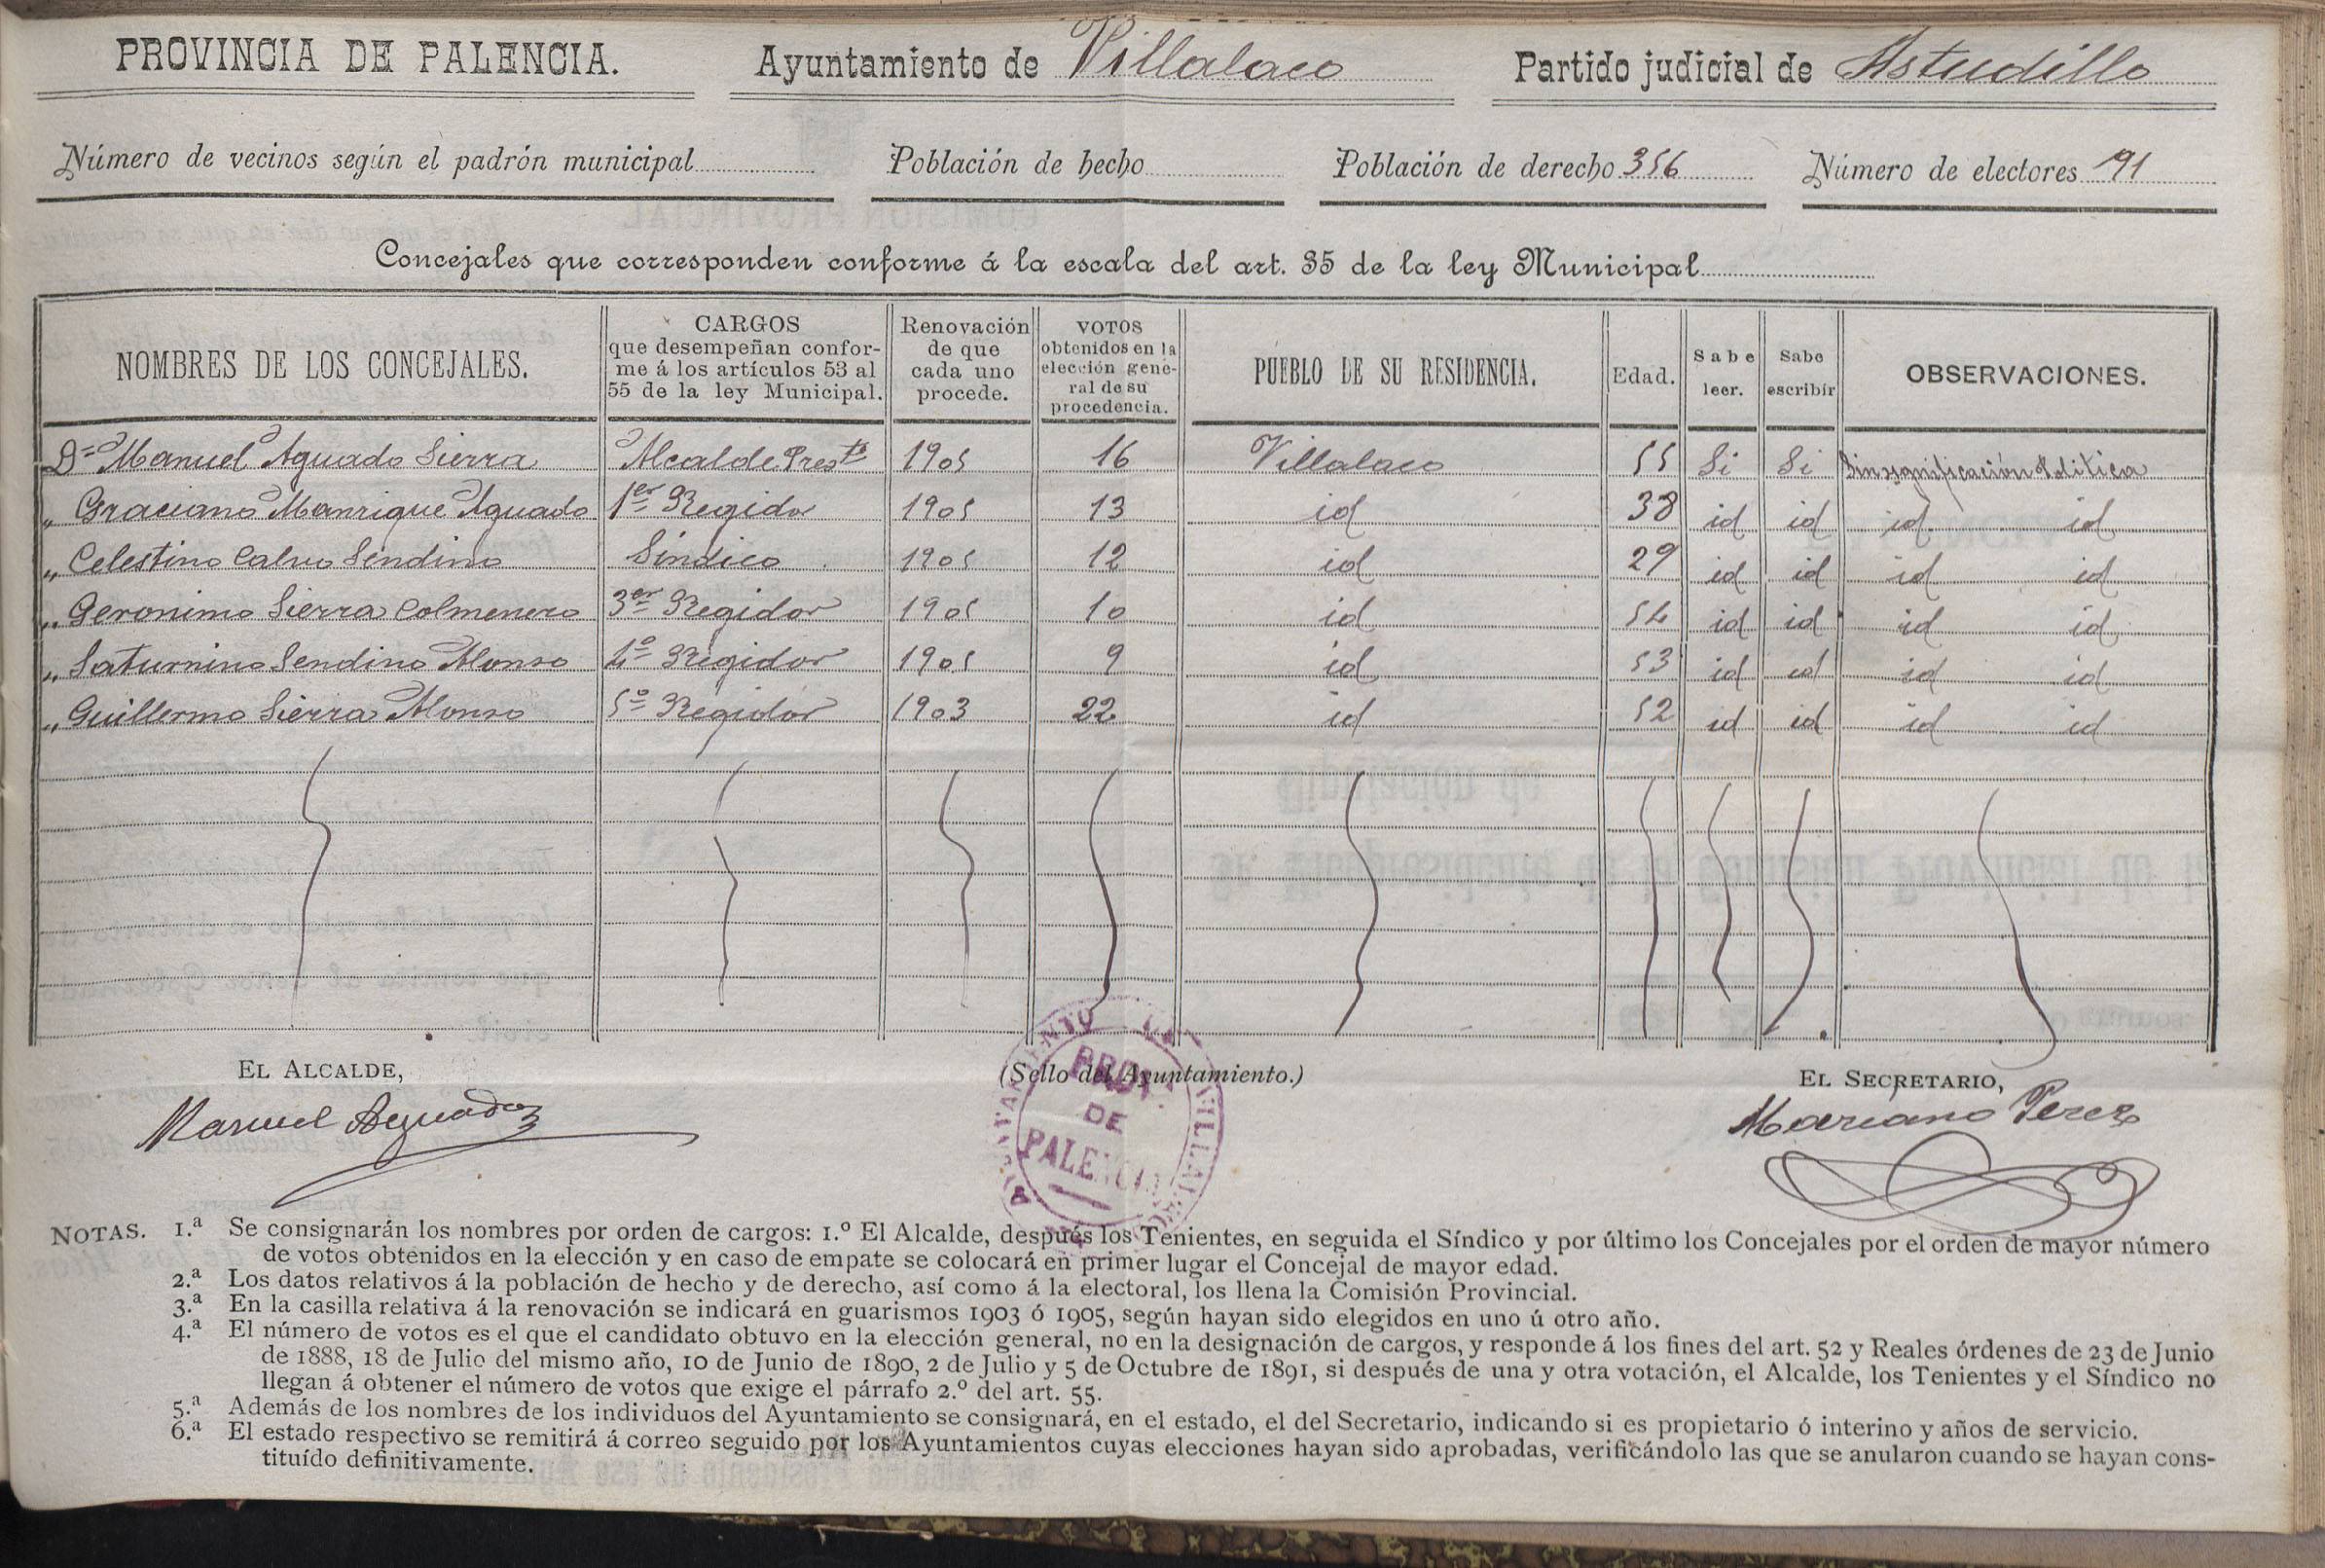 PROVINCIA DE PALENCIA. Ayuntamiento de Villalaco Partido judicial de Astudillo
Número de vecinos según el padrón municipal Población de hecho Población de derecho 356 Número de electores 91
Concejales que corresponden conforme á la escala del art. 35 de la ley Municipal
NOMBRES DE LOS CONCEJALES. CARGOS que desempeñan confor- me á los artículos 53 al 55 de la ley Municipal. Renovación de que cada uno procede. VOTOS obtenidos en la elección gene- ral de su procedencia. PUEBLO DE SU RESIDENCIA. Edad. Sabe leer. Sabe escribir OBSERVACIONES.
Dn Manuel Aguado Sierra Alcalde Preste 1905 16 Villalaco 55 Si Si Sin significación Politica
" Graciano Manrique Aguado 1er Regidor 1905 13 id 38 id id id id
" Celestino Calvo Sendino Sindico 1905 12 id 29 id id id id
" Geronimo Sierra Colmenero 3er Regidor 1905 10 id 54 id id id id
" Saturnino Sendino Alonso 4º Regidor 1905 9 id 53 id id id id
" Guillermo Sierra Alonso 5º Regidor 1903 22 id 52 id id id id
EL ALCALDE, (Sello del Ayuntamiento.) EL SECRETARIO,
Manuel Aguado Mariano Perez
PROV.
DE
PALENCIA
NOTAS. 1.ª Se consignarán los nombres por orden de cargos: 1.º El Alcalde, después los Tenientes, en seguida el Síndico y por último los Concejales por el orden de mayor número
de votos obtenidos en la elección y en caso de empate se colocará en primer lugar el Concejal de mayor edad.
2.ª Los datos relativos á la población de hecho y de derecho, así como á la electoral, los llena la Comisión Provincial.
3.ª En la casilla relativa á la renovación se indicará en guarismos 1903 ó 1905, según hayan sido elegidos en uno ú otro año.
4.ª El número de votos es el que el candidato obtuvo en la elección general, no en la designación de cargos, y responde á los fines del art. 52 y Reales órdenes de 23 de Junio
de 1888, 18 de Julio del mismo año, 10 de Junio de 1890, 2 de Julio y 5 de Octubre de 1891, si después de una y otra votación, el Alcalde, los Tenientes y el Síndico no
llegan á obtener el número de votos que exige el párrafo 2.º del art. 55.
5.ª Además de los nombres de los individuos del Ayuntamiento se consignará, en el estado, el del Secretario, indicando si es propietario ó interino y años de servicio.
6.ª El estado respectivo se remitirá á correo seguido por los Ayuntamientos cuyas elecciones hayan sido aprobadas, verificándolo las que se anularon cuando se hayan cons-
tituído definitivamente.